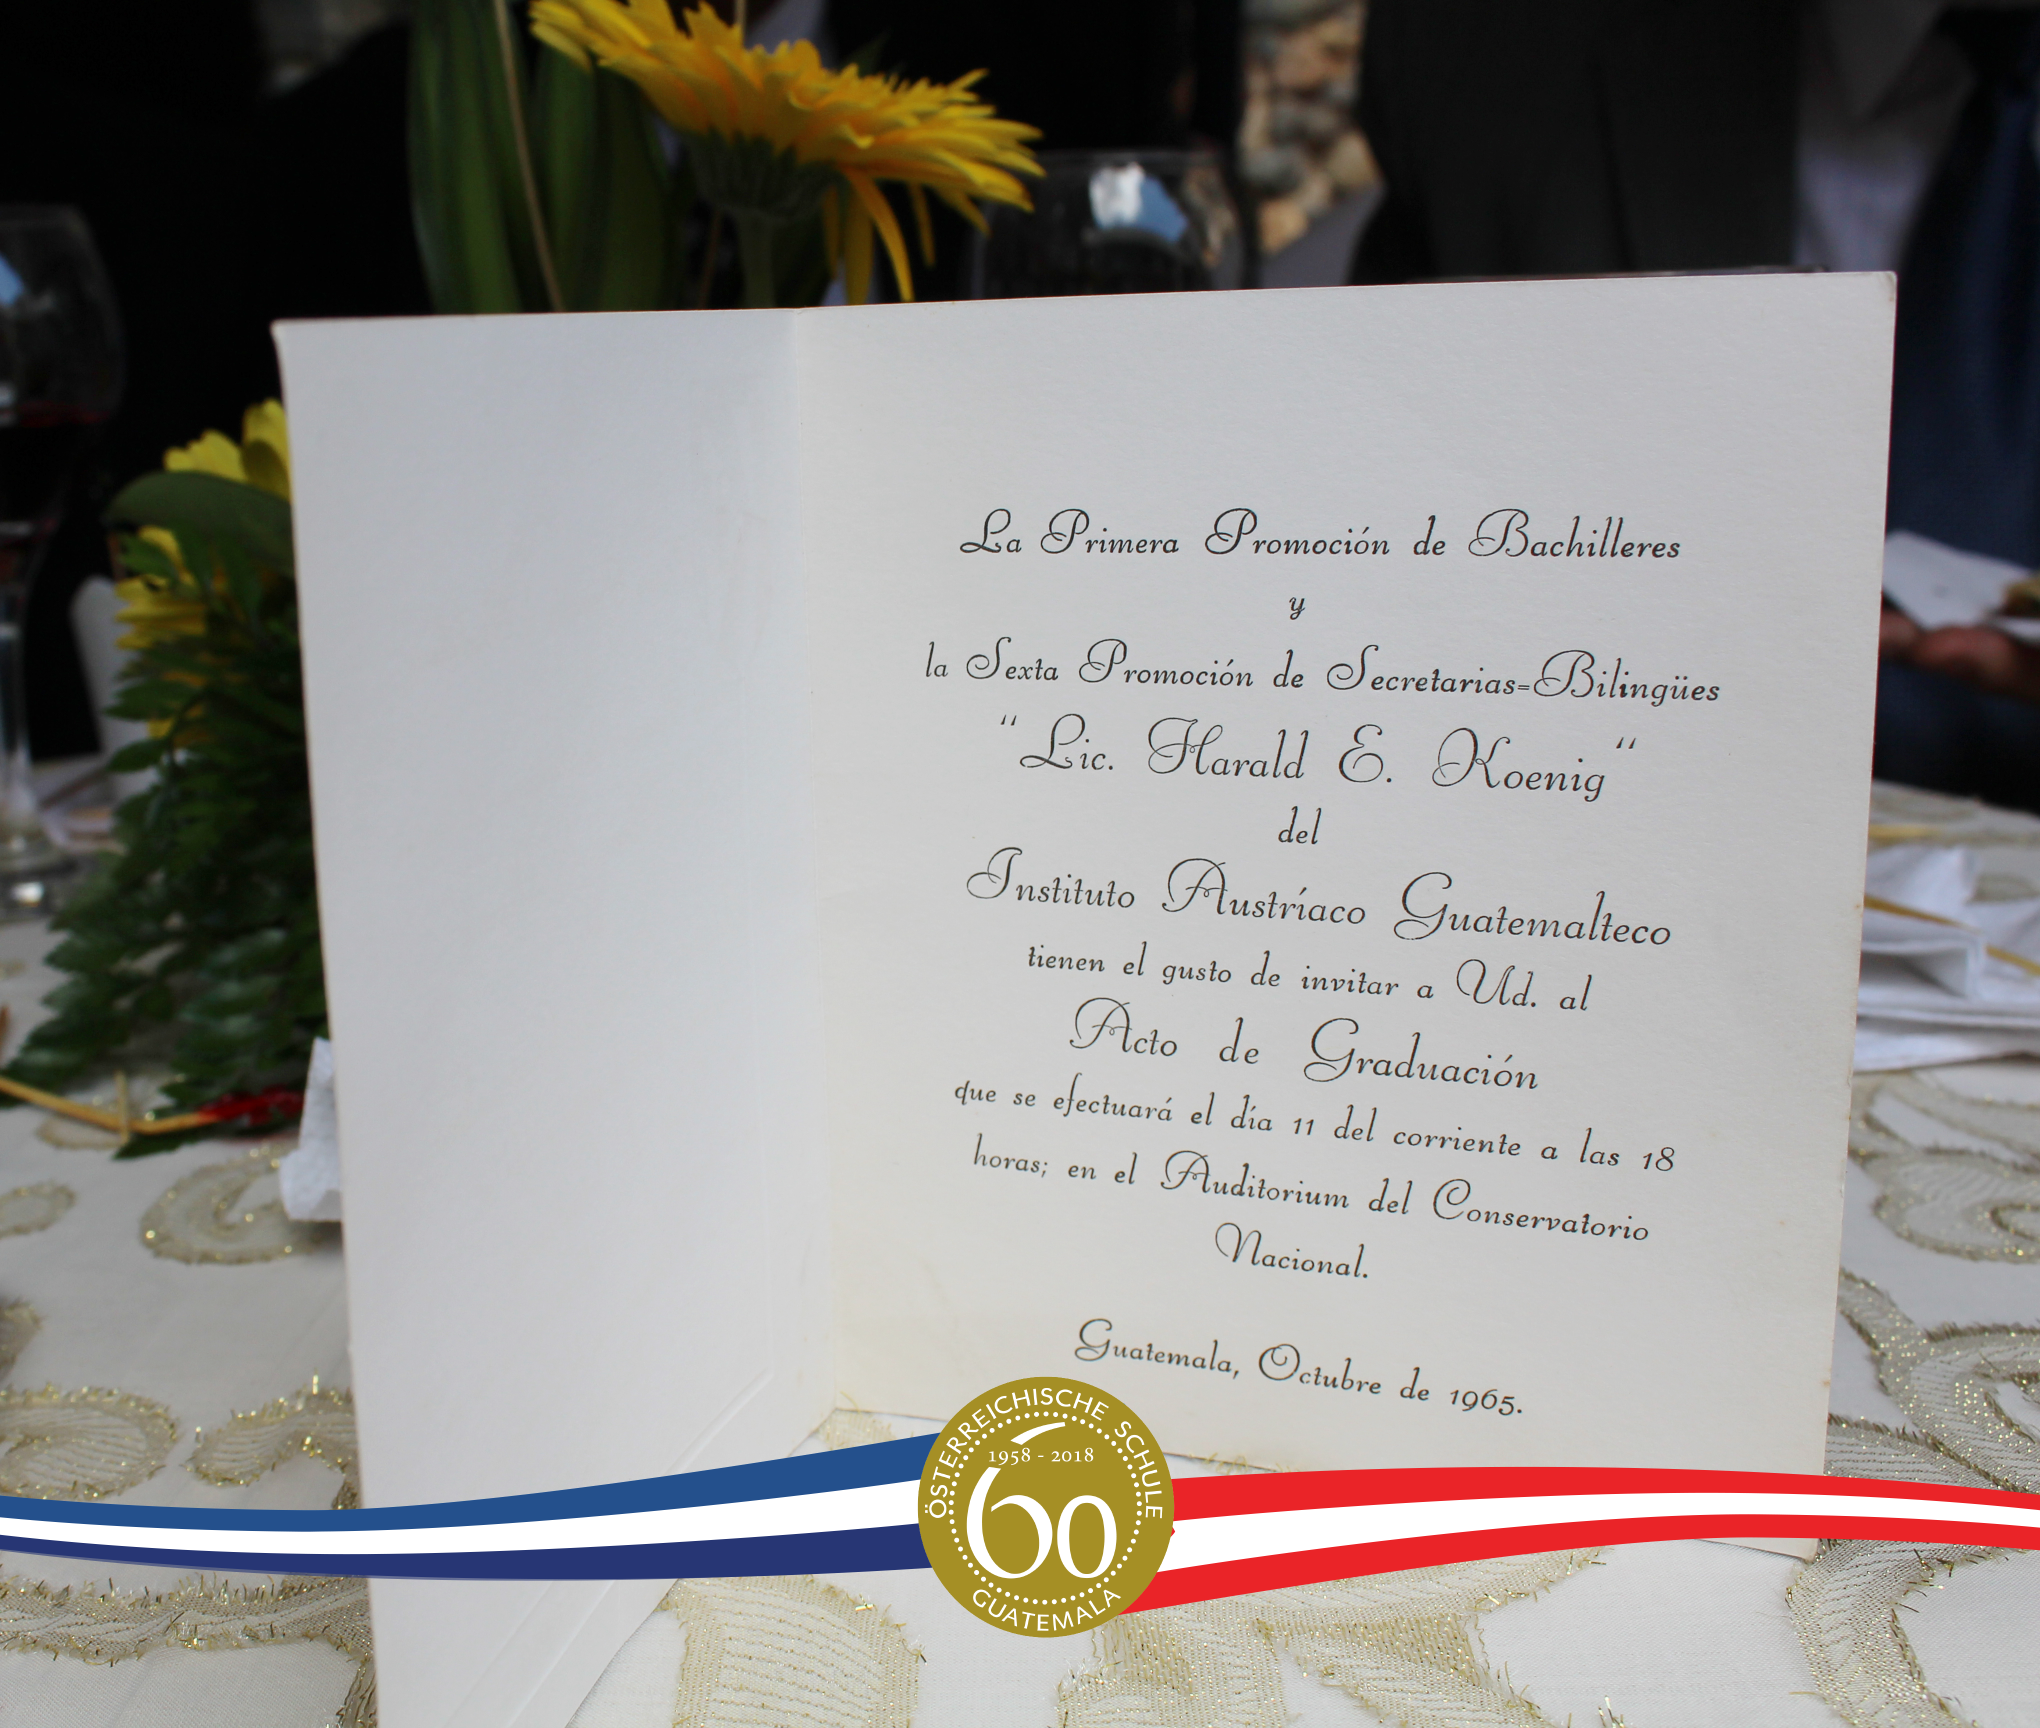 La Primera Promoción de Bachilleres
y
la Sexta Promoción de Secretarias=Bilingües
"Lic. Harald E. Koenig"
del
Instituto Austríaco Guatemalteco
tienen el gusto de invitar a Ud. al
Acto de Graduación
que se efectuará el día 11 del corriente a las 18
horas; en el Auditorium del Conservatorio
Nacional.
Guatemala, Octubre de 1965.
ÖSTERREICHISCHE SCHULE
1958 - 2018
60
GUATEMALA